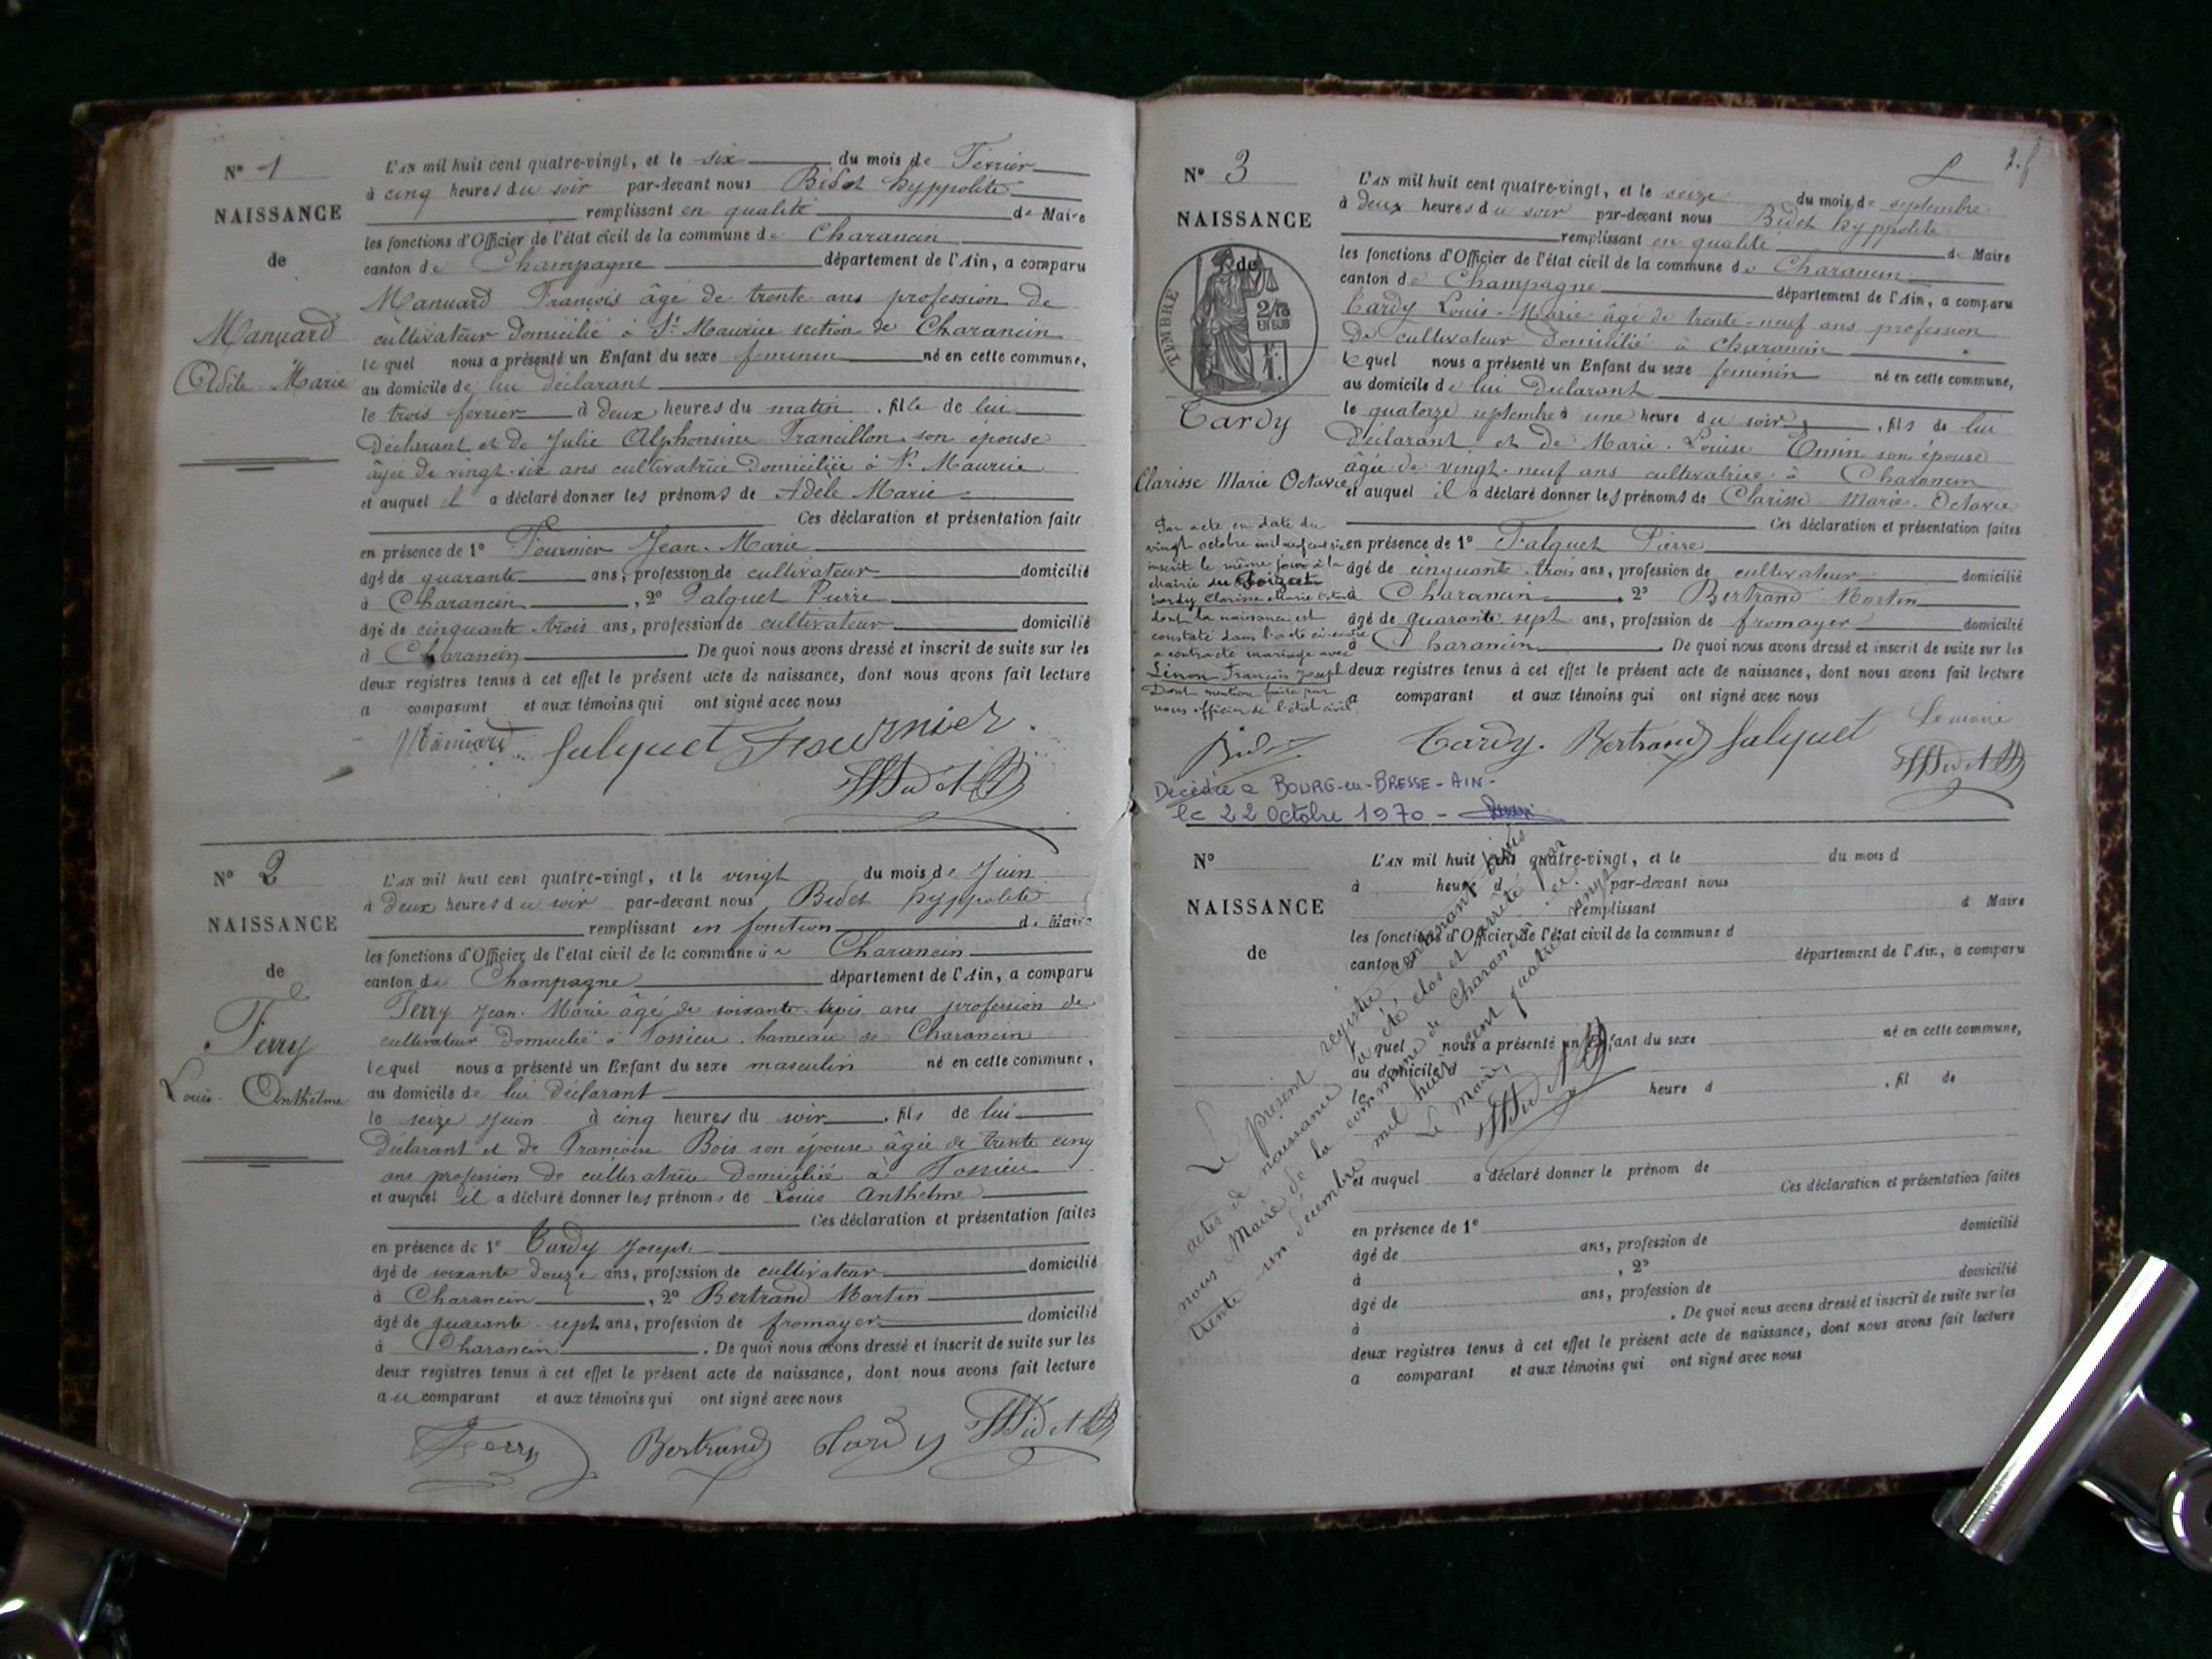 N° 1
NAISSANCE
de
Manuard
Adèle Marie
L'AN mil huit cent quatre-vingt, et le six du mois de Février
à cinq heures du soir par-devant nous Bidet hyppolite
remplissant en qualité de Maire
les fonctions d'Officier de l'état civil de la commune de Charancin
canton de Champagne département de l'Ain, a comparu
Manuard François âgé de trente ans profession de
cultivateur domicilié à St Maurice section de Charancin
lequel nous a présenté un Enfant du sexe feminin né en cette commune,
au domicile de lui déclarant
le trois fevrier à deux heures du matin , fille de lui
Déclarant et de Julie Alphonsine Francillon son épouse
âgée de vingt-six ans cultivatrice domiciliée à St Maurice
et auquel il a déclaré donner les prénoms de Adèle Marie
Ces déclaration et présentation faite
en présence de 1° Fournier Jean-Marie
âgé de quarante ans, profession de cultivateur domicilié
à Charancin , 2° Falquet Pierre
âgé de cinquante trois ans, profession de cultivateur domicilié
à Charancin De quoi nous avons dressé et inscrit de suite sur les
deux registres tenus à cet effet le présent acte de naissance, dont nous avons fait lecture
a comparant et aux témoins qui ont signé avec nous
Manuard falquet Fournier
N° 2
NAISSANCE
de
Ferry
Louis Anthelme
L'AN mil huit cent quatre-vingt, et le vingt du mois de Juin
à deux heures du soir par-devant nous Bidet hyppolite
remplissant en fonction de Maire
les fonctions d'Officier de l'état civil de la commune de Charancin
canton de Champagne département de l'Ain, a comparu
Ferry Jean-Marie âgé de soixante-trois ans profession de
cultivateur domicilié à Fossieu hameau de Charancin
lequel nous a présenté un Enfant du sexe masculin né en cette commune,
au domicile de lui déclarant
le seize Juin à cinq heures du soir , fils de lui
Déclarant et de Françoise Bois son épouse âgée de trente cinq
ans profession de cultivatrice domiciliée à Fossieu
et auquel il a déclaré donner les prénoms de Louis Anthelme
Ces déclaration et présentation faites
en présence de 1° Tardy Joseph
âgé de soixante douze ans, profession de cultivateur domicilié
à Charancin , 2° Bertrand Martin
âgé de quarante-sept ans, profession de fromager domicilié
à Charancin . De quoi nous avons dressé et inscrit de suite sur les
deux registres tenus à cet effet le présent acte de naissance, dont nous avons fait lecture
au comparant et aux témoins qui ont signé avec nous
Ferry Bertrand Tardy
N° 3
NAISSANCE
de
TIMBRE
EN SUS
Tardy
Clarisse Marie Octavie
L'AN mil huit cent quatre-vingt, et le seize du mois de septembre
à deux heures du soir par-devant nous Bidet hyppolite
remplissant en qualité de Maire
les fonctions d'Officier de l'état civil de la commune de Charancin
canton de Champagne département de l'Ain, a comparu
Tardy Louis-Marie âgé de trente-neuf ans profession
de cultivateur domicilié à Charancin
lequel nous a présenté un Enfant du sexe feminin né en cette commune,
au domicile de lui Declarant
le quatorze septembre à une heure du soir , fils de lui
Déclarant et de Marie-Louise Emin son épouse
âgée de vingt-neuf ans cultivatrice à Charancin
et auquel il a déclaré donner les prénoms de Clarisse Marie-Octavie
Ces déclaration et présentation faites
en présence de 1° Falquet Pierre
âgé de cinquante trois ans, profession de cultivateur domicilié
à Charancin , 2° Bertrand Martin
âgé de quarante sept ans, profession de fromager domicilié
à Charancin . De quoi nous avons dressé et inscrit de suite sur les
deux registres tenus à cet effet le présent acte de naissance, dont nous avons fait lecture
a comparant et aux témoins qui ont signé avec nous
Par acte en date du
vingt octobre mil neuf cent six
inscrit le même jour à la
mairie du
Tardy Clarisse Marie Octavie
dont la naissance est
constaté dans l'acte ci-contre
a contracté mariage avec
Linon François Joseph
Dont mention faite par
nous officier de l'état civil
Tardy. Bertrand falquet Le maire
Décédée à BOURG-en-BRESSE-AIN-
le 22 Octobre 1970 -
N°
NAISSANCE
de
L'AN mil huit cent quatre-vingt, et le du mois d
à heure d par-devant nous
remplissant d Maire
les fonctions d'Officier de l'état civil de la commune d
canton d département de l'Ain, a comparu
quel nous a présenté un Enfant du sexe né en cette commune,
au domicile d
le heure d , fil de
et auquel a déclaré donner le prénom de
Ces déclaration et présentation faites
en présence de 1° domicilié
âgé de ans, profession de
à , 2° domicilié
âgé de ans, profession de
à . De quoi nous avons dressé et inscrit de suite sur les
deux registres tenus à cet effet le présent acte de naissance, dont nous avons fait lecture
a comparant et aux témoins qui ont signé avec nous
Le présent registre contenant trois
actes de naissance a été clos et arrêté par
nous Maire de la commune de Charancin ce
trente un Décembre mil huit cent quatre vingt
Le Maire,